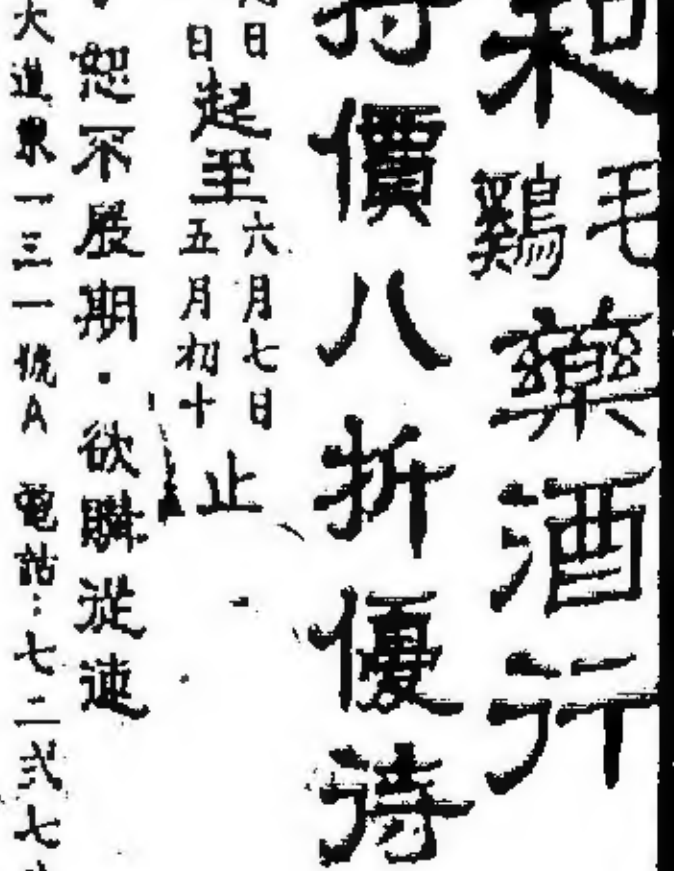 和毛鷄藥酒行
特價八折優待
日日起至六月七日五月初十止
恕不展期·欲購從速
大道東一三一號A 電話：七二弍七